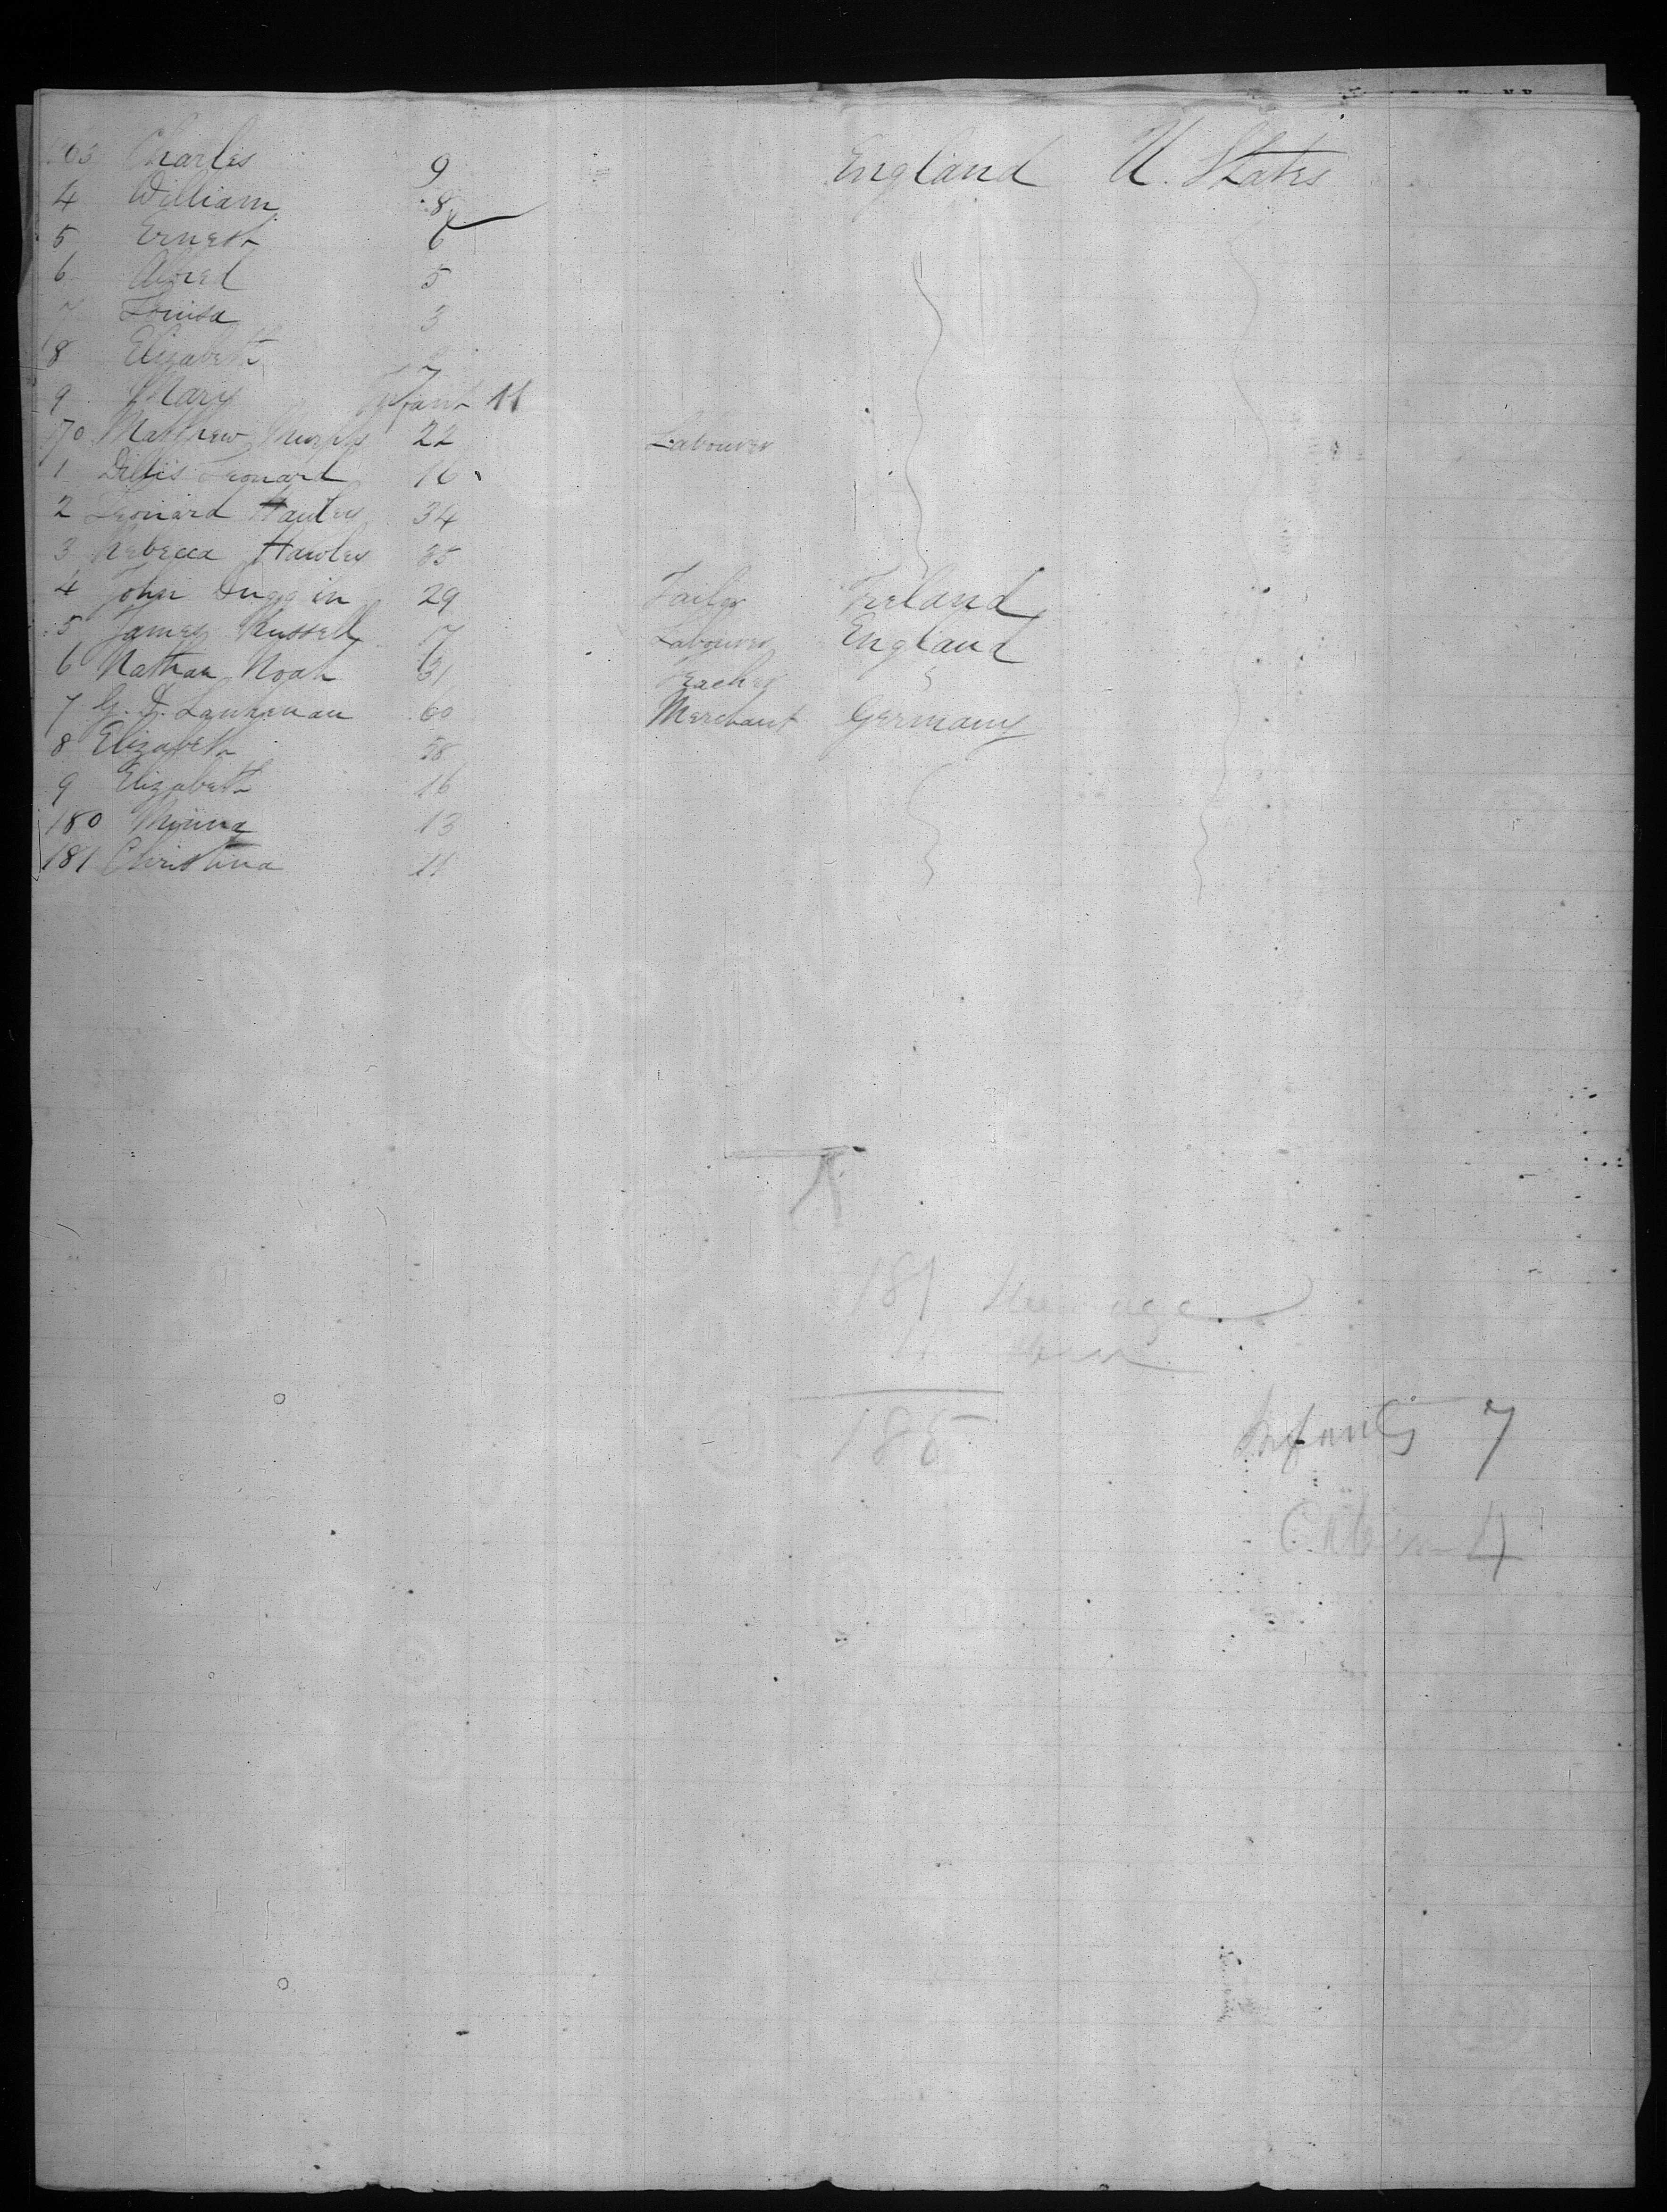 163 Charles 9 England U. States
4 William 8
5 Ernest 6
6 Alfred 5
7 Louisa 3
8 Elizabeth 2
9 Mary Infant 11
170 Mathew Murphy 22 Labourer
1 Leonard 16
2 Leonard Hawley 34
3 Rebecca Hawley 35
4 John Duggin 29 Tailor Ireland
5 James Russell 17 Labourer England
6 Nathan Noah 31 Teacher
7 G. Lankenau 60 Merchant Germany
8 Elizabeth 58
9 Elizabeth 16
180 Minna 13
181 Christina 11
181 Steerage
4 Cabin
185
Infants 7
Cabin 4